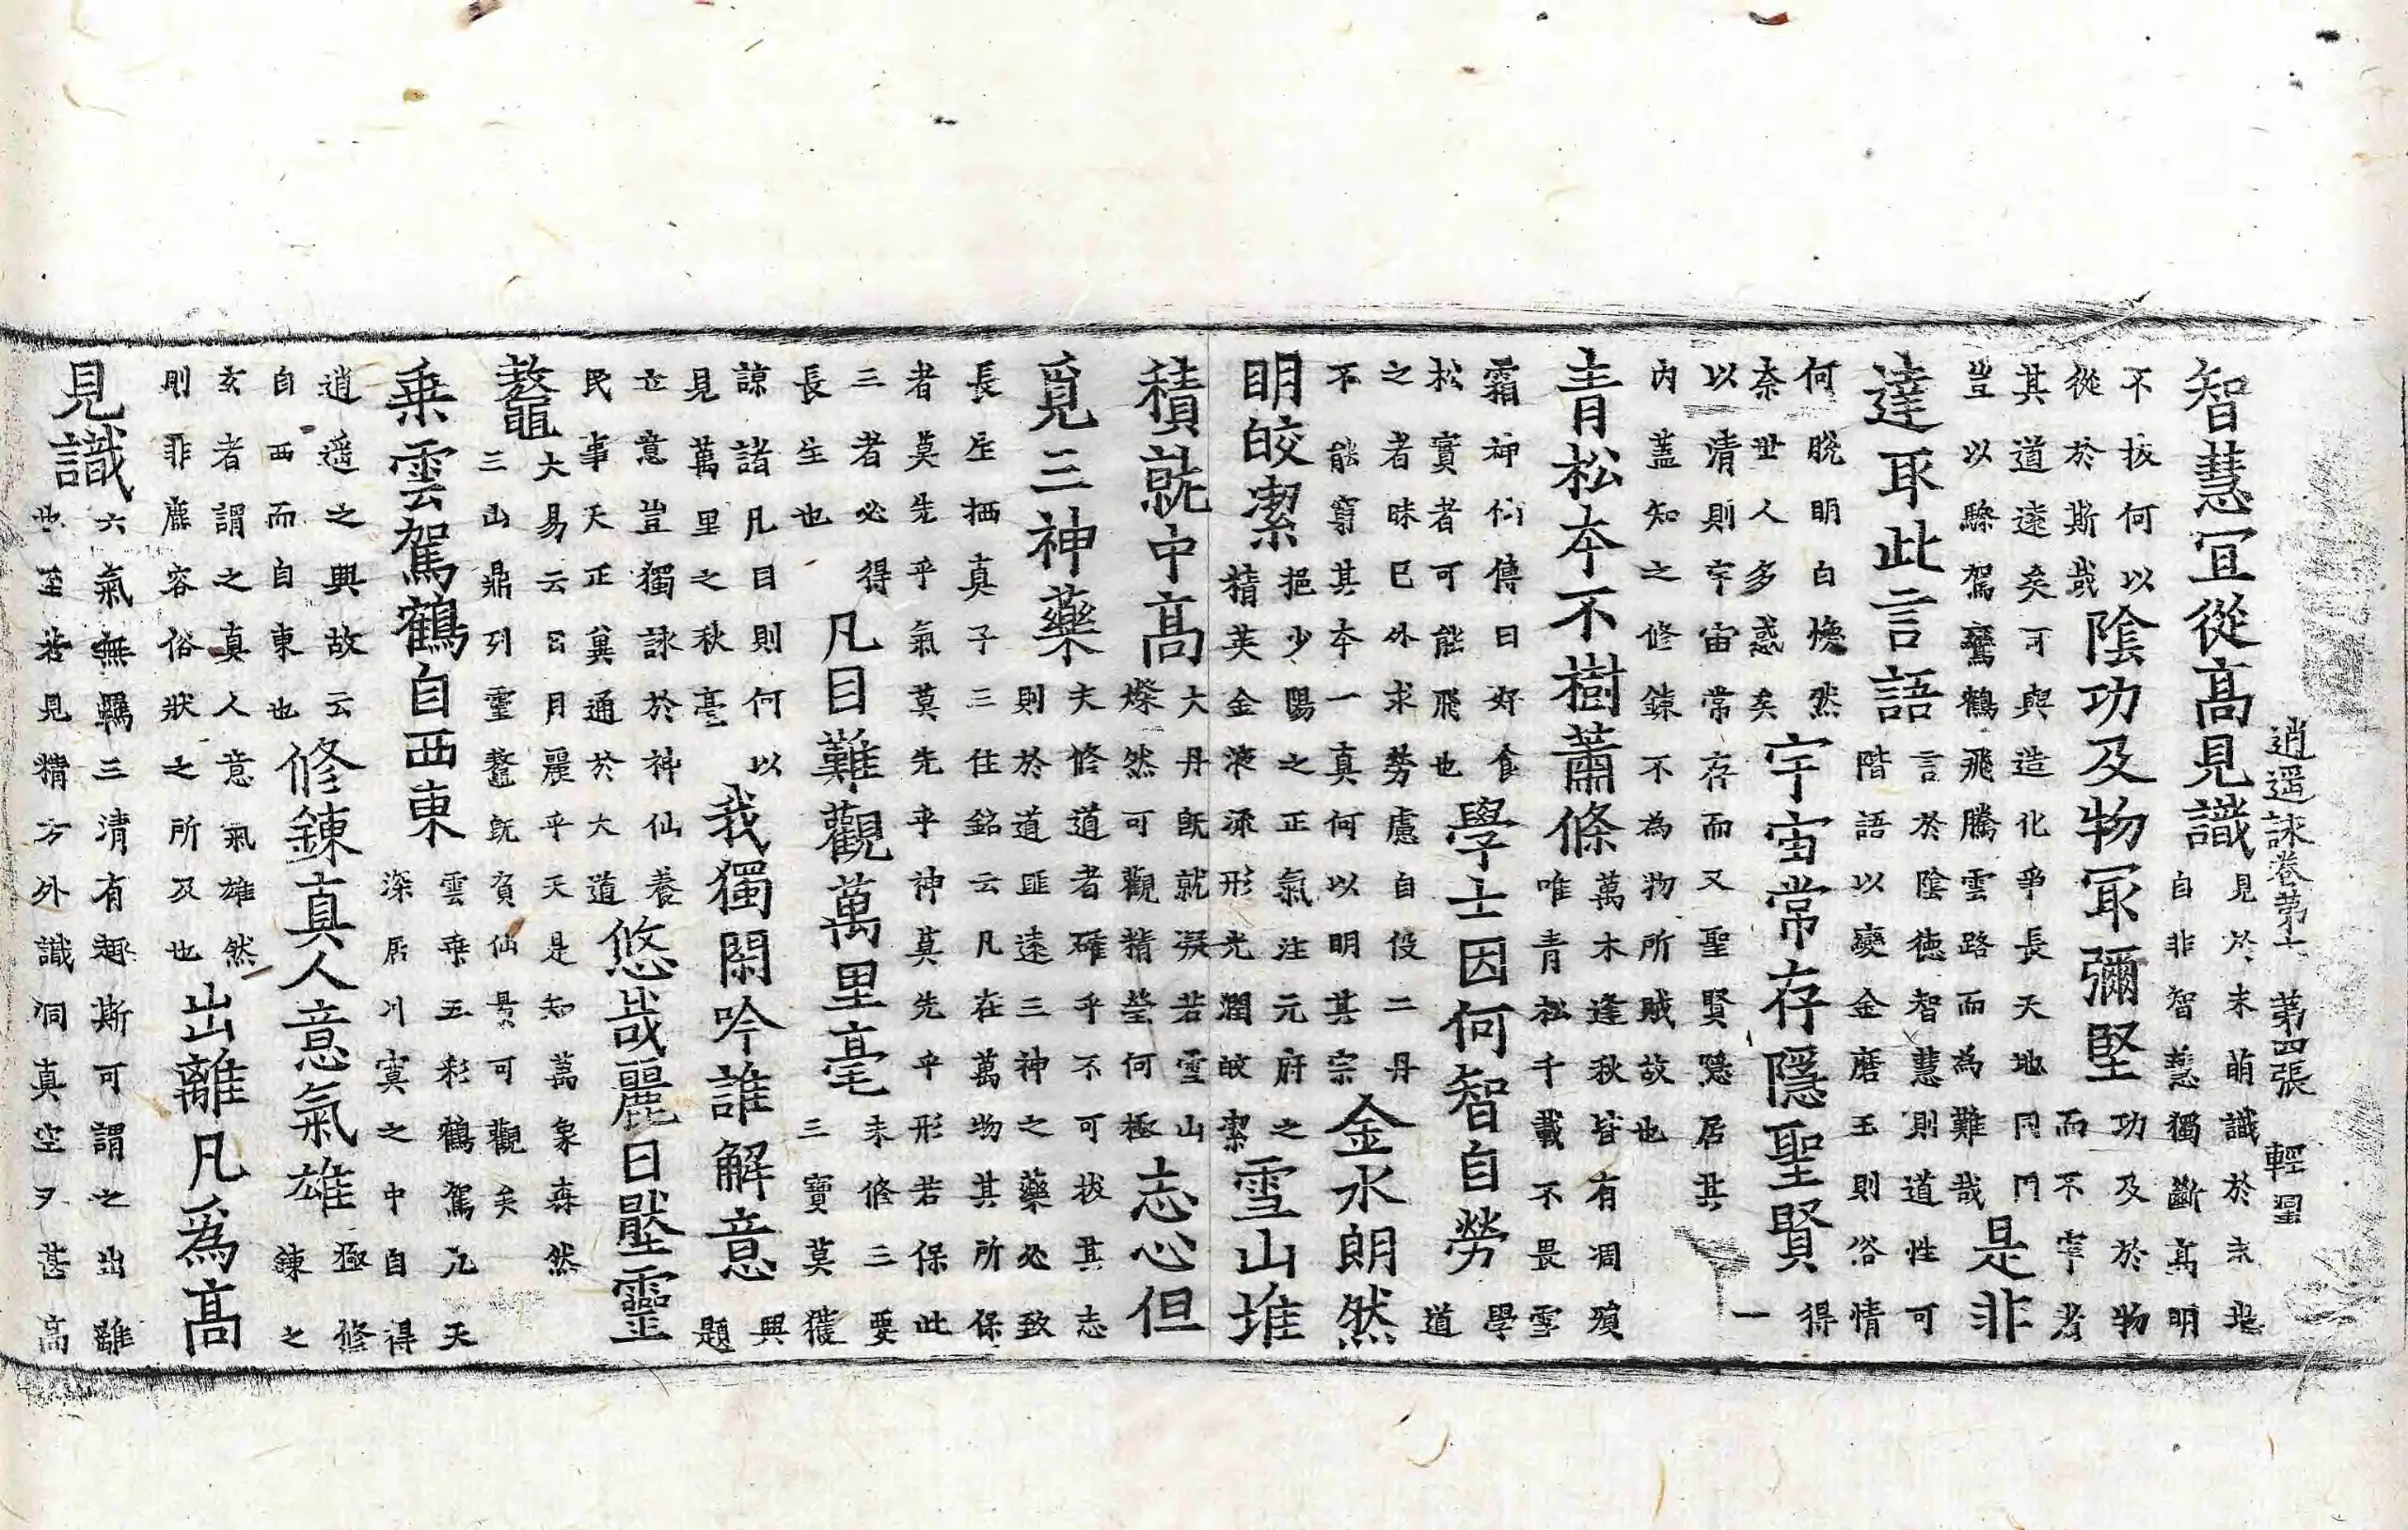 逍遥詠卷第十　第四張
智慧冝從高見識
見於未萌識於未兆
自非智慧獨斷高明
不拔何以
從於斯哉
陰功及物冣彌堅
功及於物
而不宰者
其道遠矣可與造化爭長天地同門
豈以驂駕鸞鶴飛騰雲路而為難哉
是非
達取此言語
言於陰德智慧則道性可
階語以變金磨玉則俗情
何脫明白煥然
奈世人多惑矣
宇宙常存隱聖賢
得
一
以清則宇宙常存而又聖賢隱居其
内蓋知之修鍊不為物所賊故也
青松本不樹蕭條
萬木逢秋皆有凋殞
唯青松千載不畏雪
霜神仙傳曰好食
松實者可能飛也
學士因何智自勞
學
道
之者昧巳外求勞慮自役二丹
不能窮其本一真何以明其宗
金水朗然
明皎潔
挹少陽之正氣注元府之
精英金液添形光潤皎潔
雪山堆
積就中高
大丹既就凝若雪山
燦然可觀精瑩何極
志心但
覓三神藥
夫修道者確乎不可拔其志
則於道匪遠三神之藥必致
長生栖真子三住銘云凡在萬物其所保
者莫先乎氣莫先乎神莫先乎形若保此
三者必得
長生也
凡目難觀萬里毫
未修三要
三寶莫獲
諒諸凡目則何以
見萬里之秋毫
我獨閑吟誰解意
興
題
立意豈獨詠於神仙養
民事天正冀通於大道
悠哉麗日壓靈
鼇
大易云日月麗乎天是知萬象森然
三山鼎列靈鼇既負仙景可觀矣
乗雲駕鶴自西東
雲乗五彩鶴駕九天
深居川寞之中自得
逍遥之興故云
自西而自東也
修鍊真人意氣雄
極修
鍊之
玄者謂之真人意氣雄然
則非麁容俗狀之所及也
出離凡爲高
見識
六氣無羈三清有趣斯可謂之出離
也至若見精方外識洞真空又甚高